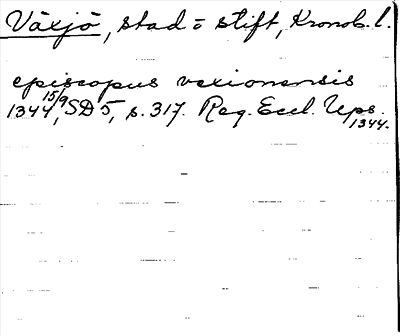 Växjö, stad o stift, Kronob. l.
episcopus vexionensis
1344 15/9, SD 5, s. 317. Reg. Eccl. Ups.
1344.